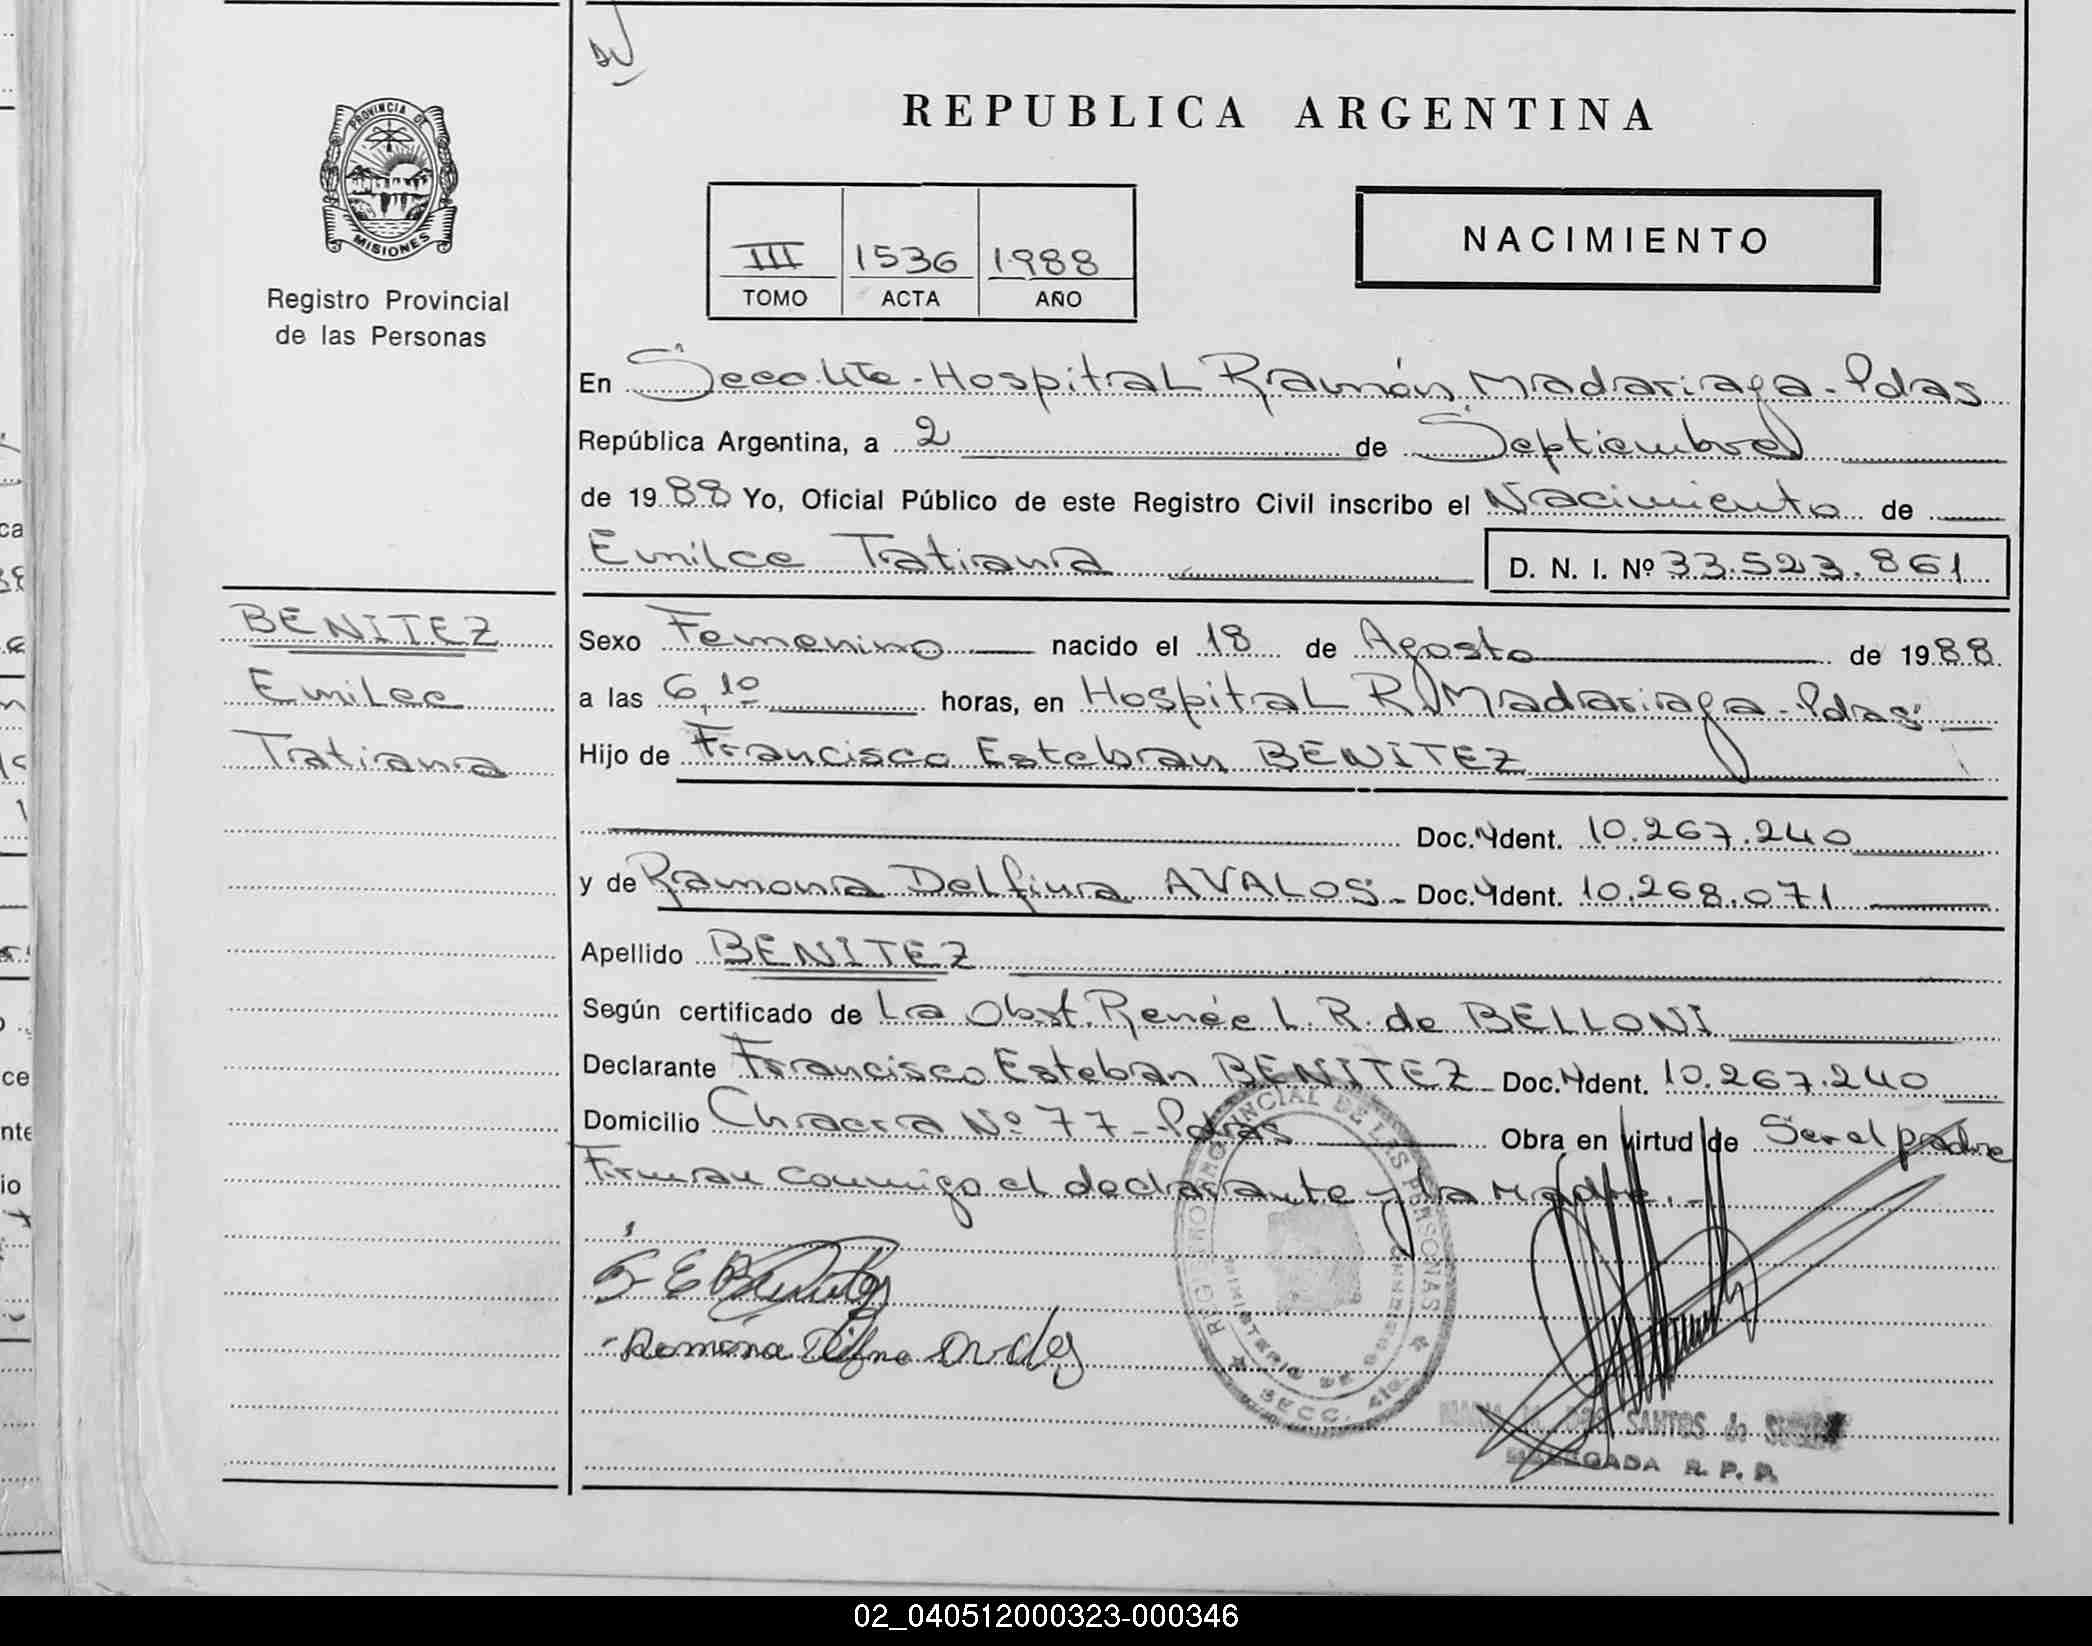 REPUBLICA ARGENTINA
PROVINCIA DE
MISIONES
Registro Provincial
de las Personas
III 1536 1988
TOMO ACTA AÑO
NACIMIENTO
En Secc. 4ta - Hospital Ramón Madariaga - Pdas
República Argentina, a 2 de Septiembre
de 1988 Yo, Oficial Público de este Registro Civil inscribo el Nacimiento de
Emilce Tatiana D. N. I. Nº 33.523.861
BENITEZ
Emilce
Tatiana
Sexo Femenino nacido el 18 de Agosto de 1988
a las 6,10 horas, en Hospital R. Madariaga - Pdas
Hijo de Francisco Esteban BENITEZ
Doc. Ident. 10.267.240
y de Ramona Delfina AVALOS - Doc. Ident. 10.268.071
Apellido BENITEZ
Según certificado de La Obst. Renée L. R. de BELLONI
Declarante Francisco Esteban BENITEZ - Doc. Ident. 10.267.240
Domicilio Chacra Nº 77 - Pdas Obra en virtud de Ser el padre
Firman conmigo el declarante y la Madre. -
F E Benitez
Ramona Delfina Avalos
REGISTRO PROVINCIAL DE LAS PERSONAS
MINISTERIO DE GOBIERNO
SECC. 4ta.
SANTOS de
DELEGADA R. P. P.
02_040512000323-000346